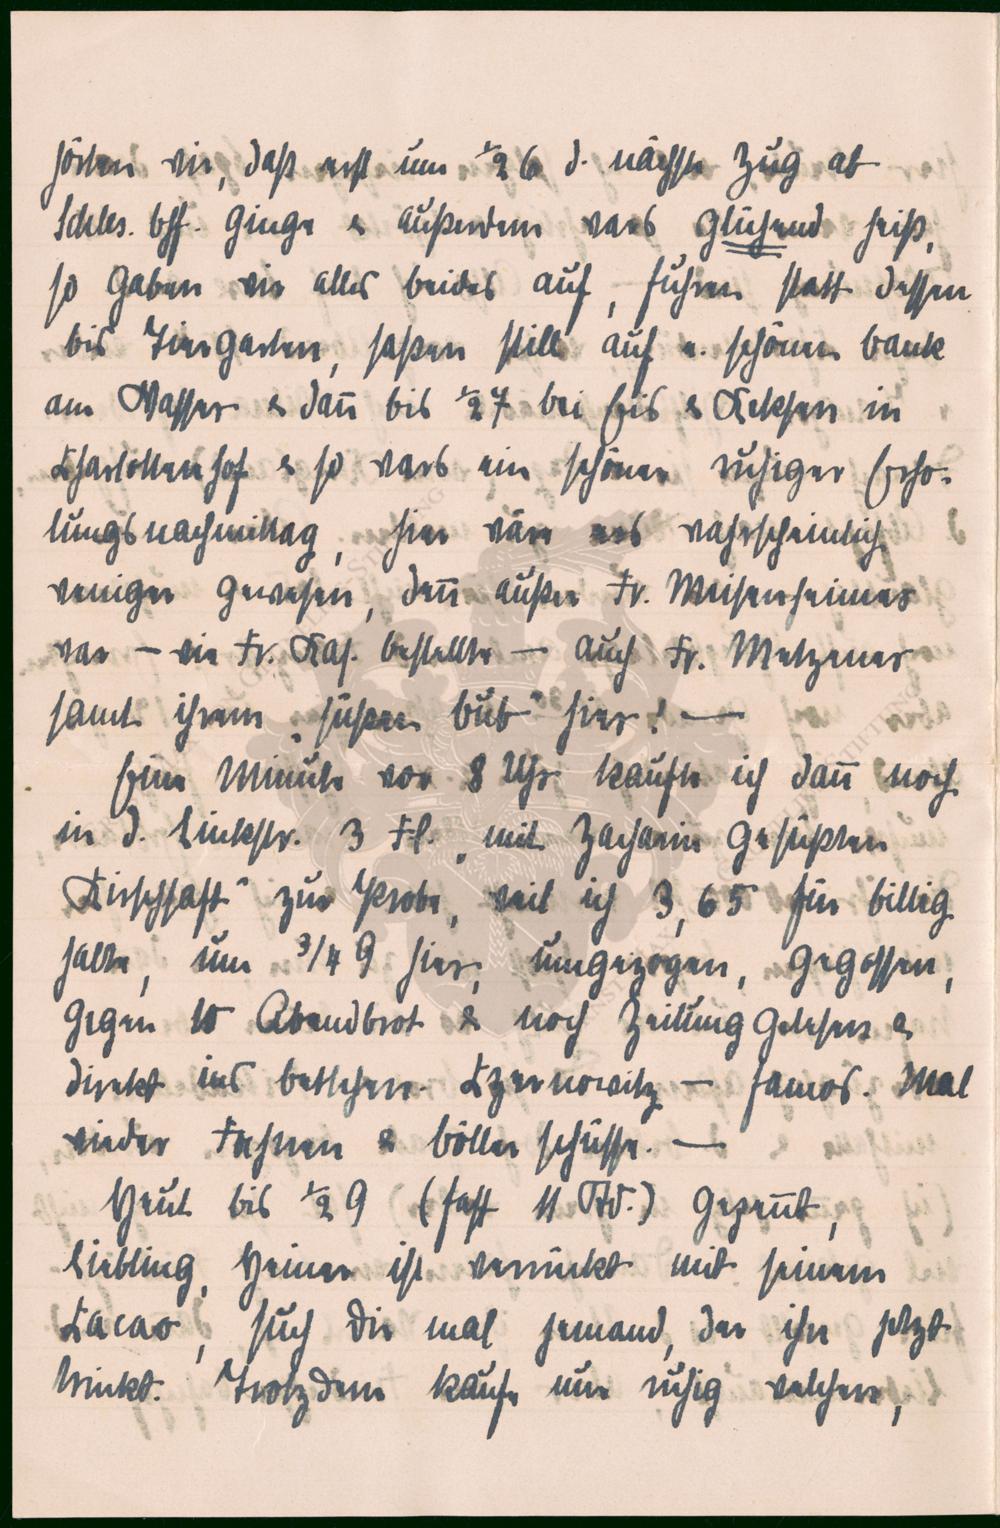 hörten wir, daß erst um ½6 d. nächste Zug ab
Schles. Bhf. ginge & außerdem wars glühend heiß,
so gaben wir alles beides auf, fuhren statt dessen
bis Tiergarten, saßen still auf e. schönen Bank
am Wasser & dañ bis ½7 bei Eis & Keksen in
Charlottenhof & so wars ein schöner ruhiger Erho-
lungsnachmittag, hier wäre es wahrscheinlich
weniger gewesen, deñ außer Fr. Meisenheimer
war – wie Fr. Kas. bestellte – auch Fr. Metzener
samt ihrem „süßen Bub" hier! —
Eine Minute vor 8 Uhr kaufte ich dañ noch
in d. Linkstr. 3 Fl. „mit Zacharin gesüßten
Kirschsaft" zur Probe, weil ich 3,65 für billig
halte, um 3/4 9 hier, umgezogen, gegossen,
gegen 10 Abendbrot & noch Zeitung gelesen &
direkt ins Bettchen. Czernowitz – famos. Mal
wieder Fahnen & Böllerschüsse. —
Heut bis ½9 (fast 11 Std.) gepeñt,
Liebling, Heiner ist verrückt mit seinem
Cacao, such Dir mal jemand, der ihn jetzt
trinkt. Trotzdem kaufe nur ruhig welchen,